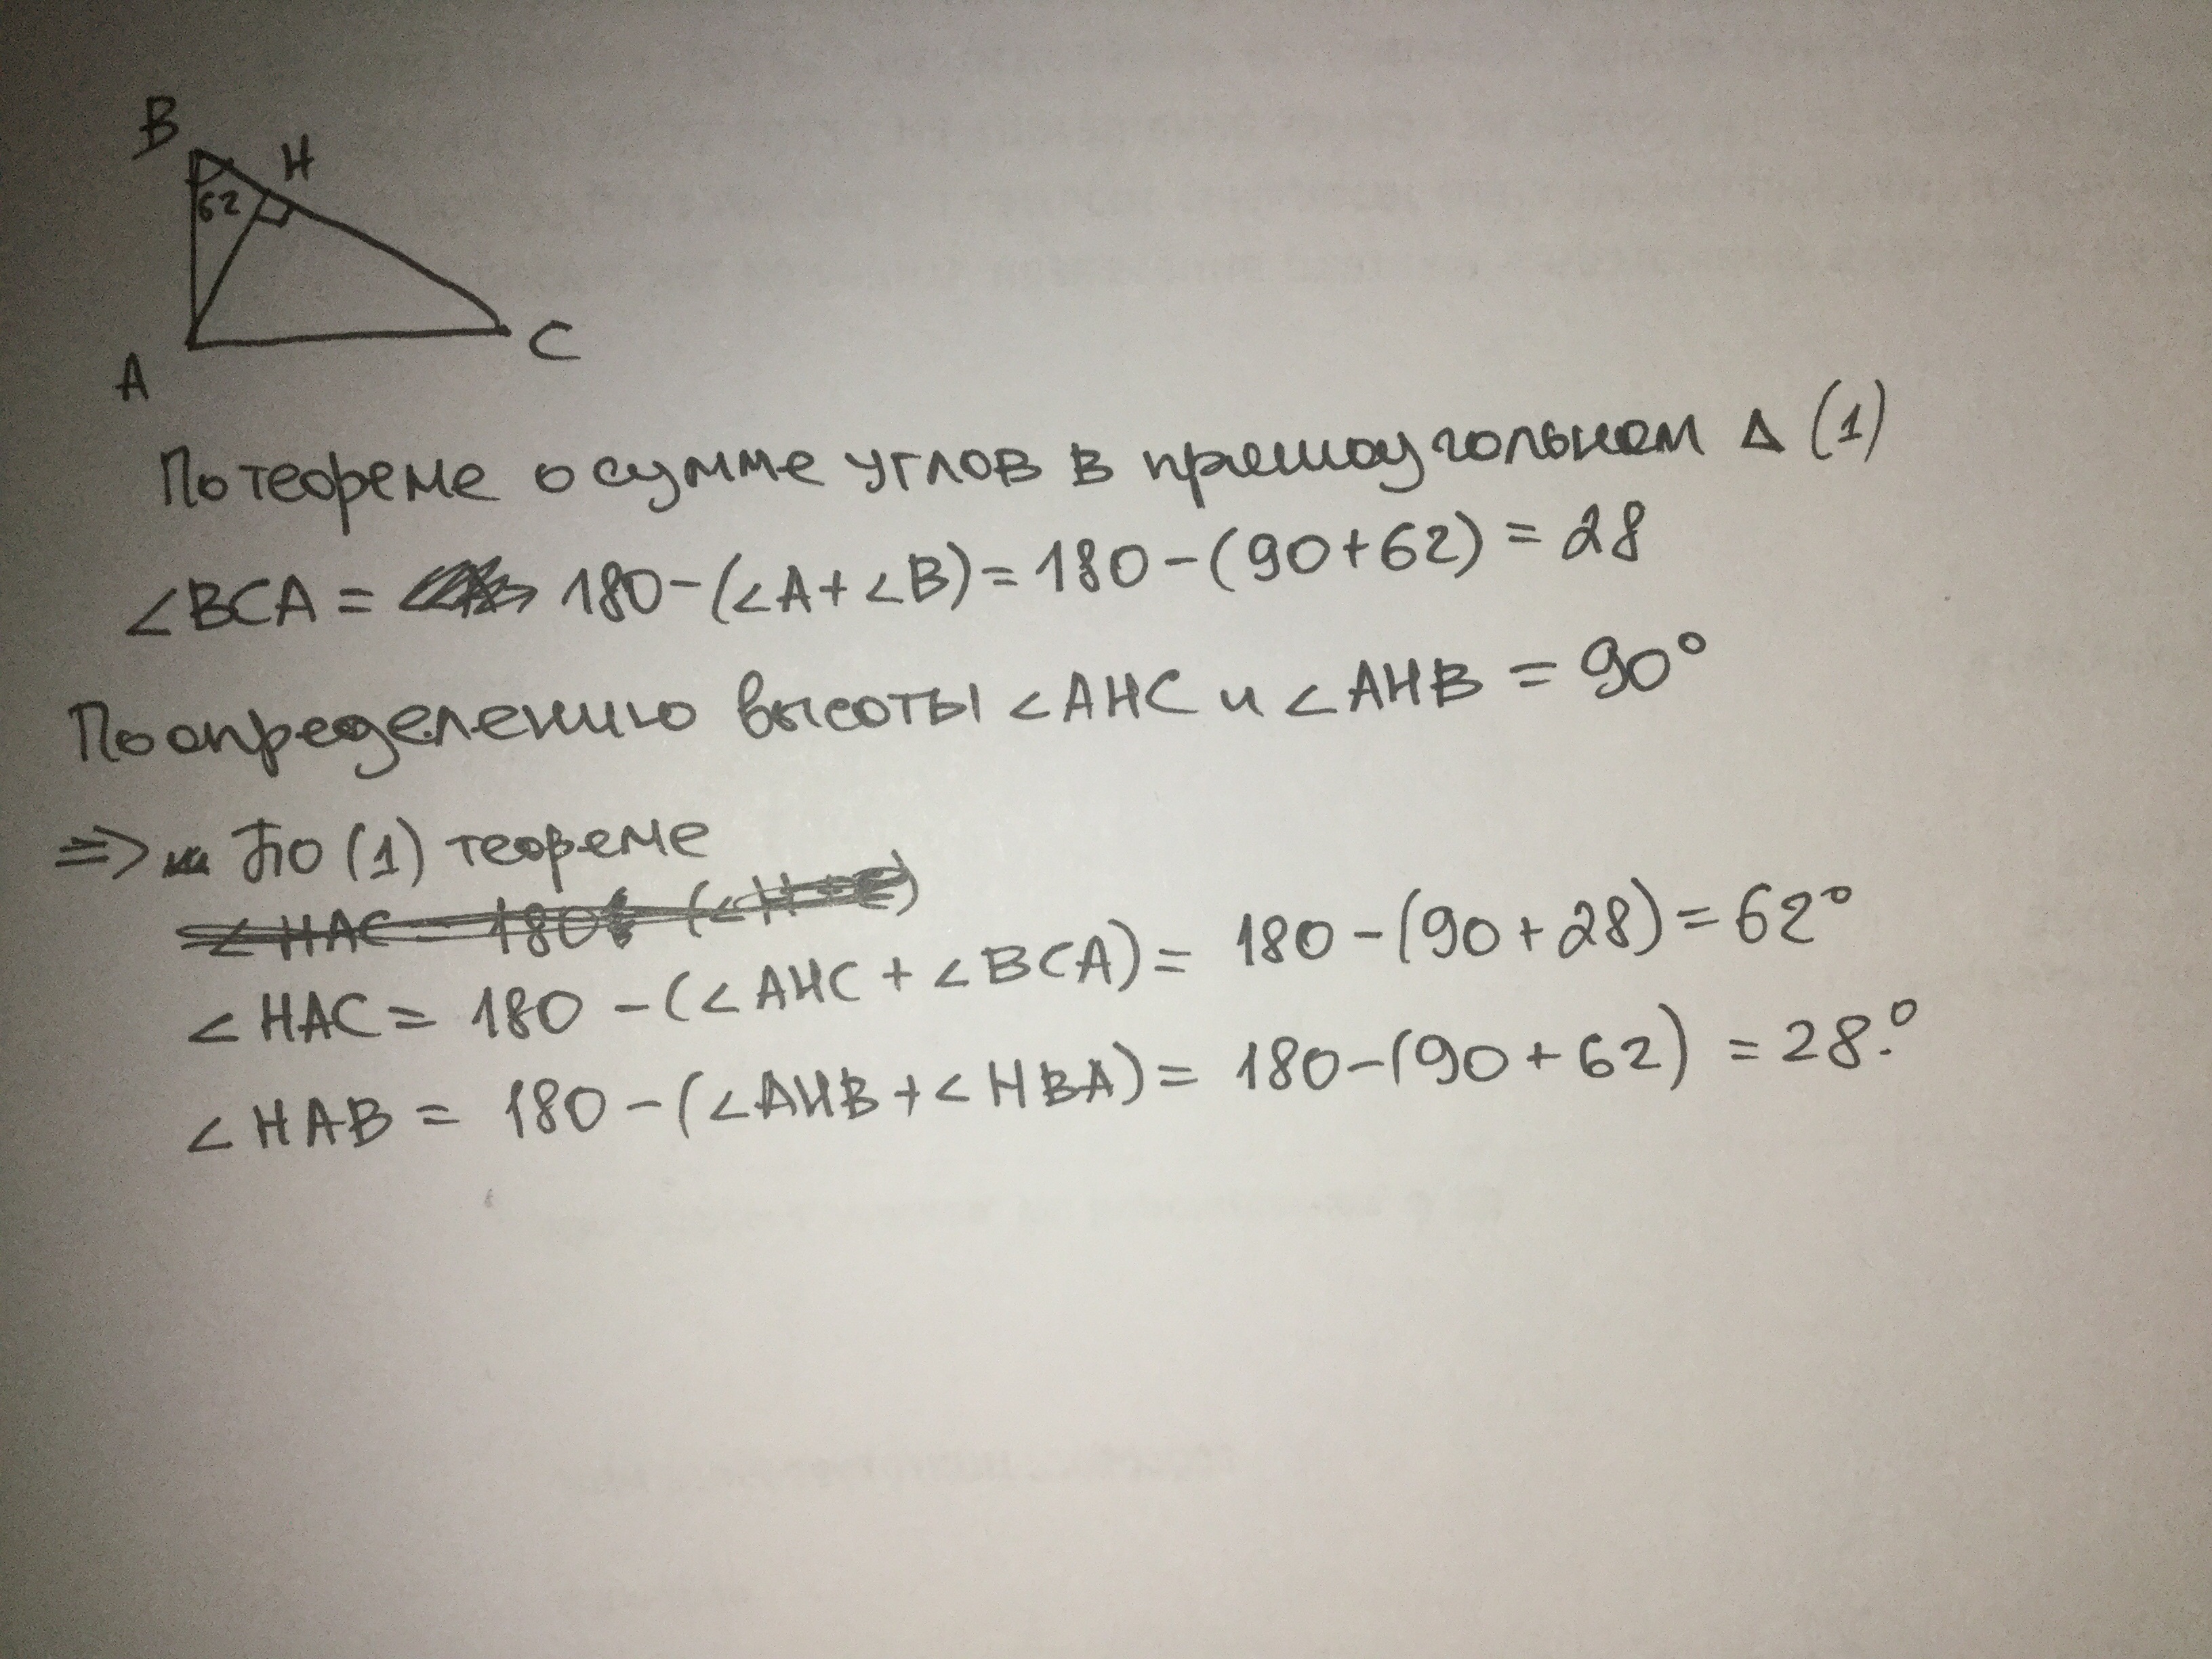 B
H
62
A
C
По теореме о сумме углов в прямоугольном Δ (1)
∠BCA = 180-(∠A+∠B)= 180-(90+62) = 28
По определению высоты ∠AHC и ∠AHB = 90°
=> По (1) теореме
∠HAC = 180 (∠H+C)
∠HAC = 180 - (∠AHC + ∠BCA) = 180-(90+28)=62°
∠HAB = 180-(∠AHB+∠HBA)= 180-(90+62) = 28.°